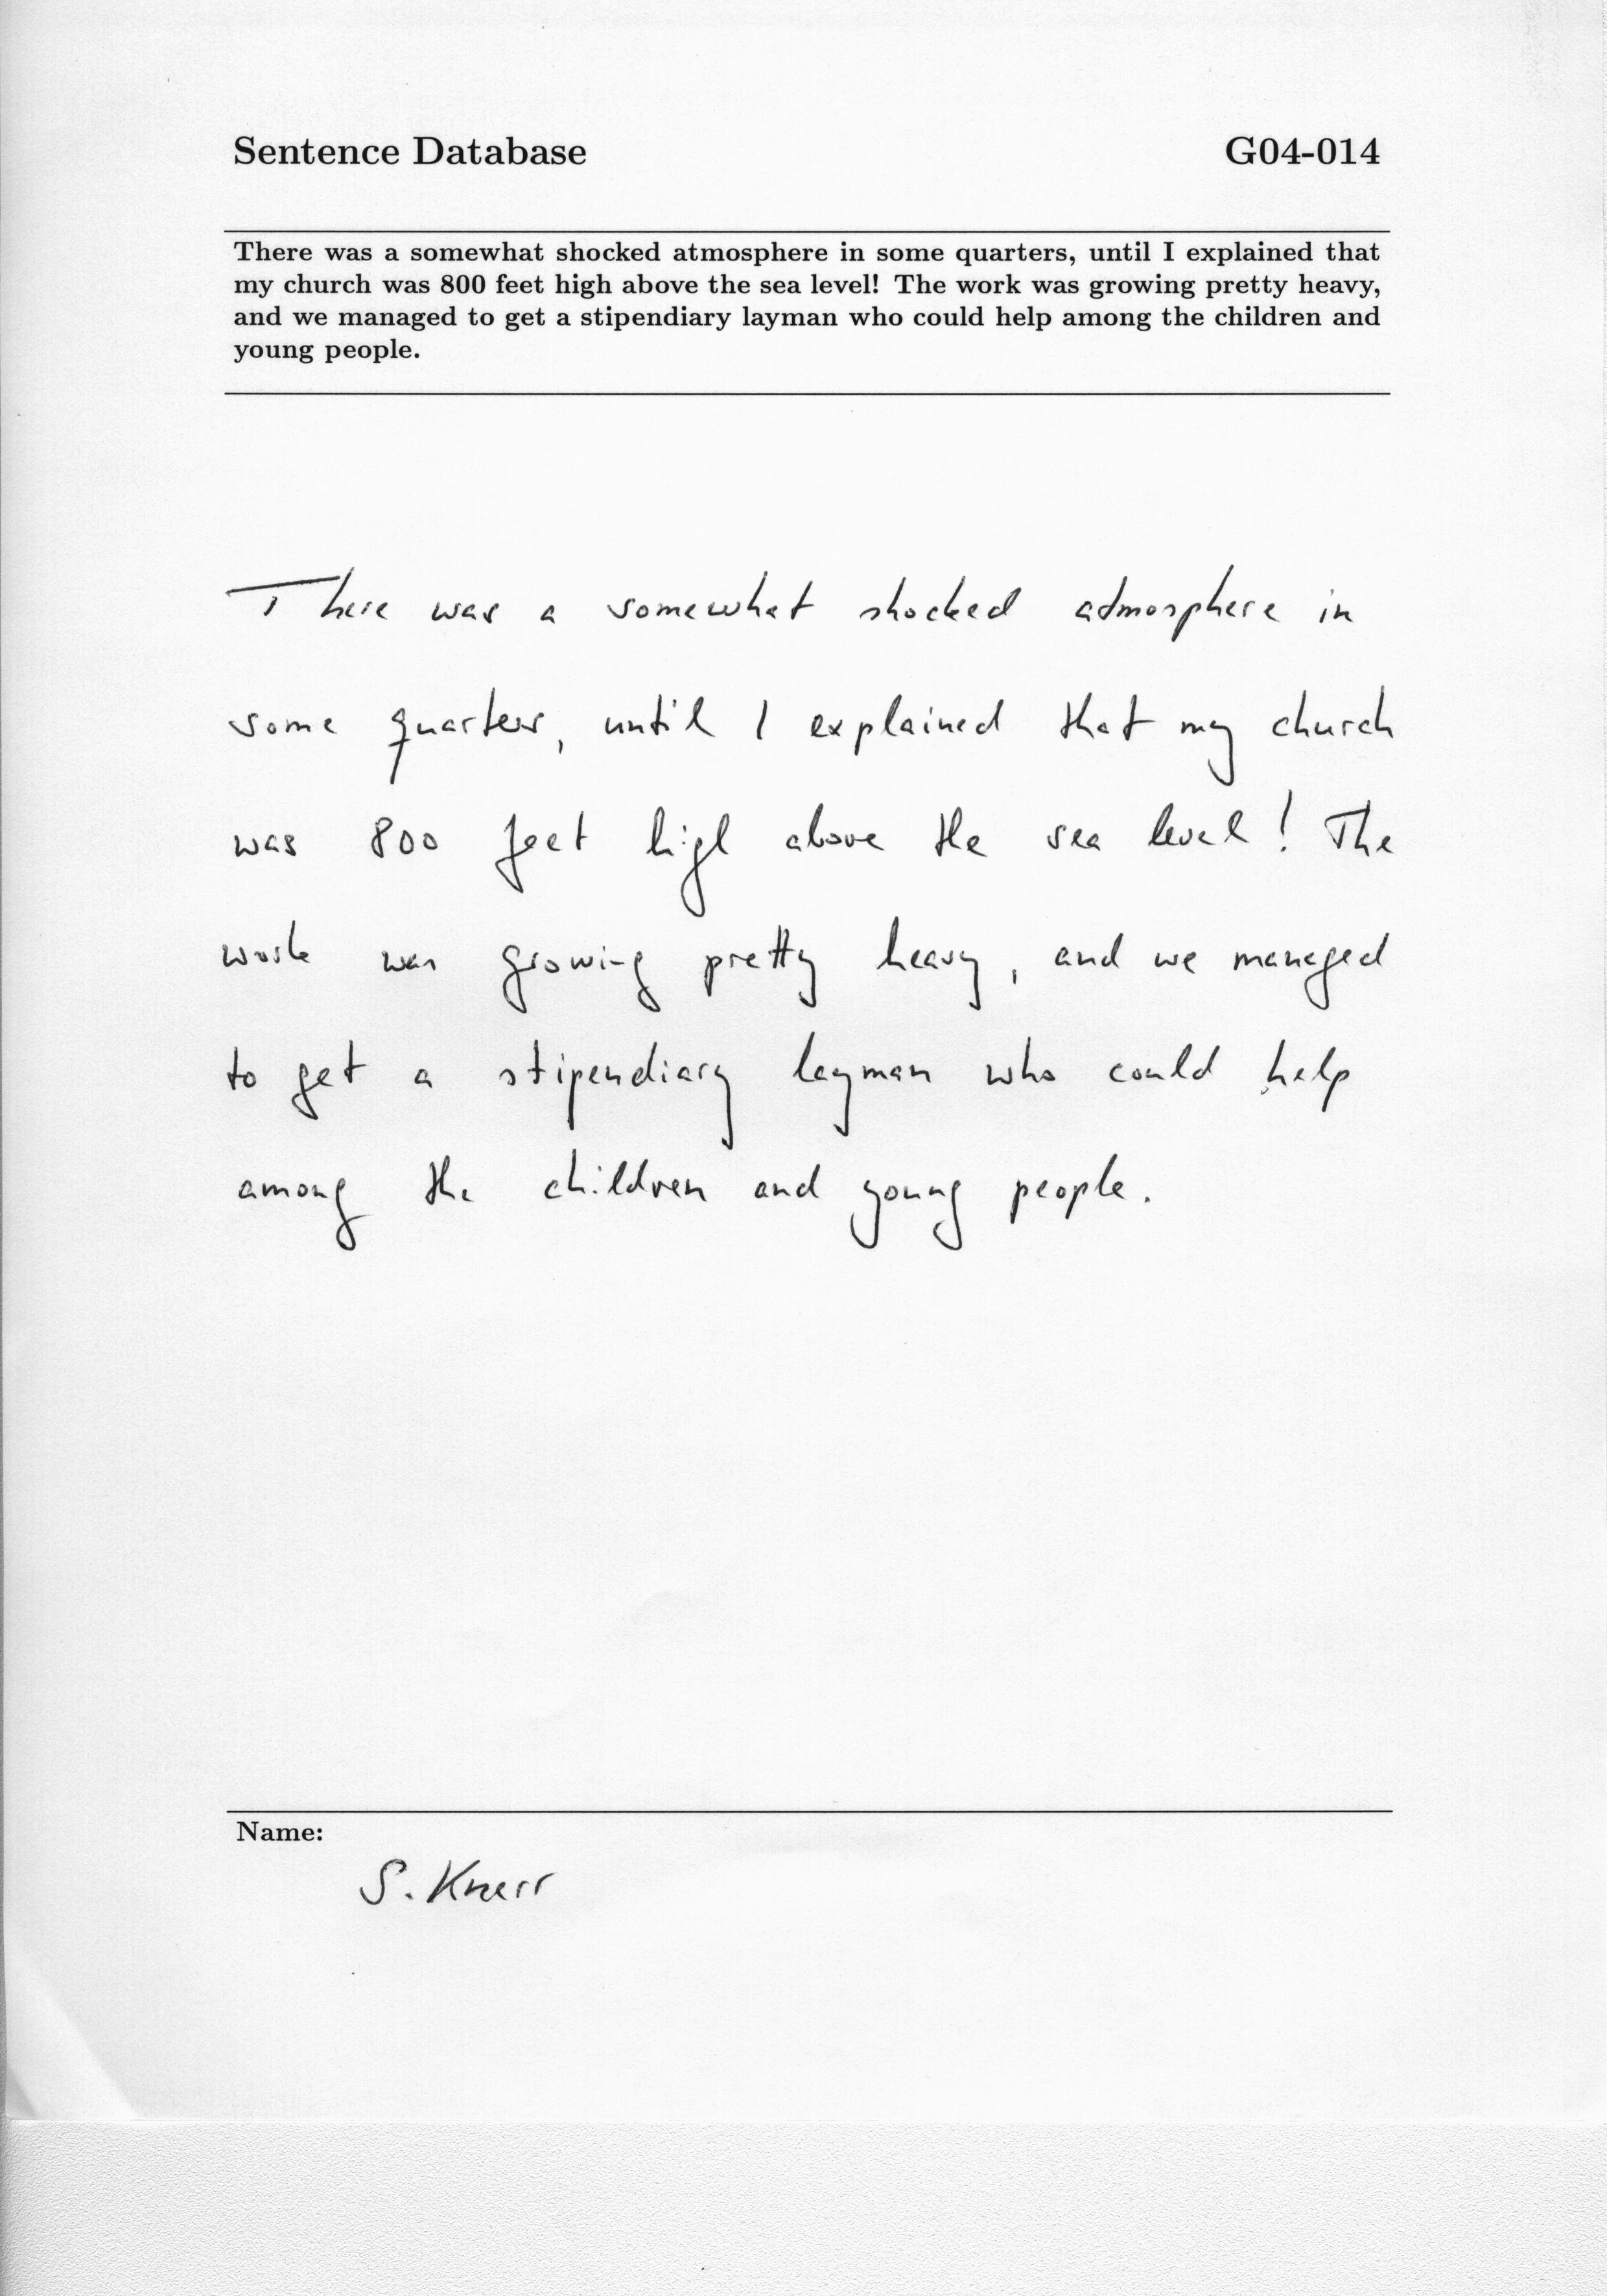 Sentence Database G04-014
There was a somewhat shocked atmosphere in some quarters, until I explained that
my church was 800 feet high above the sea level! The work was growing pretty heavy,
and we managed to get a stipendiary layman who could help among the children and
young people.
There was a somewhat shocked atmosphere in
some quarters, until I explained that my church
was 800 feet high above the sea level! The
work was growing pretty heavy, and we managed
to get a stipendiary layman who could help
among the children and young people.
Name:
S. Knerr